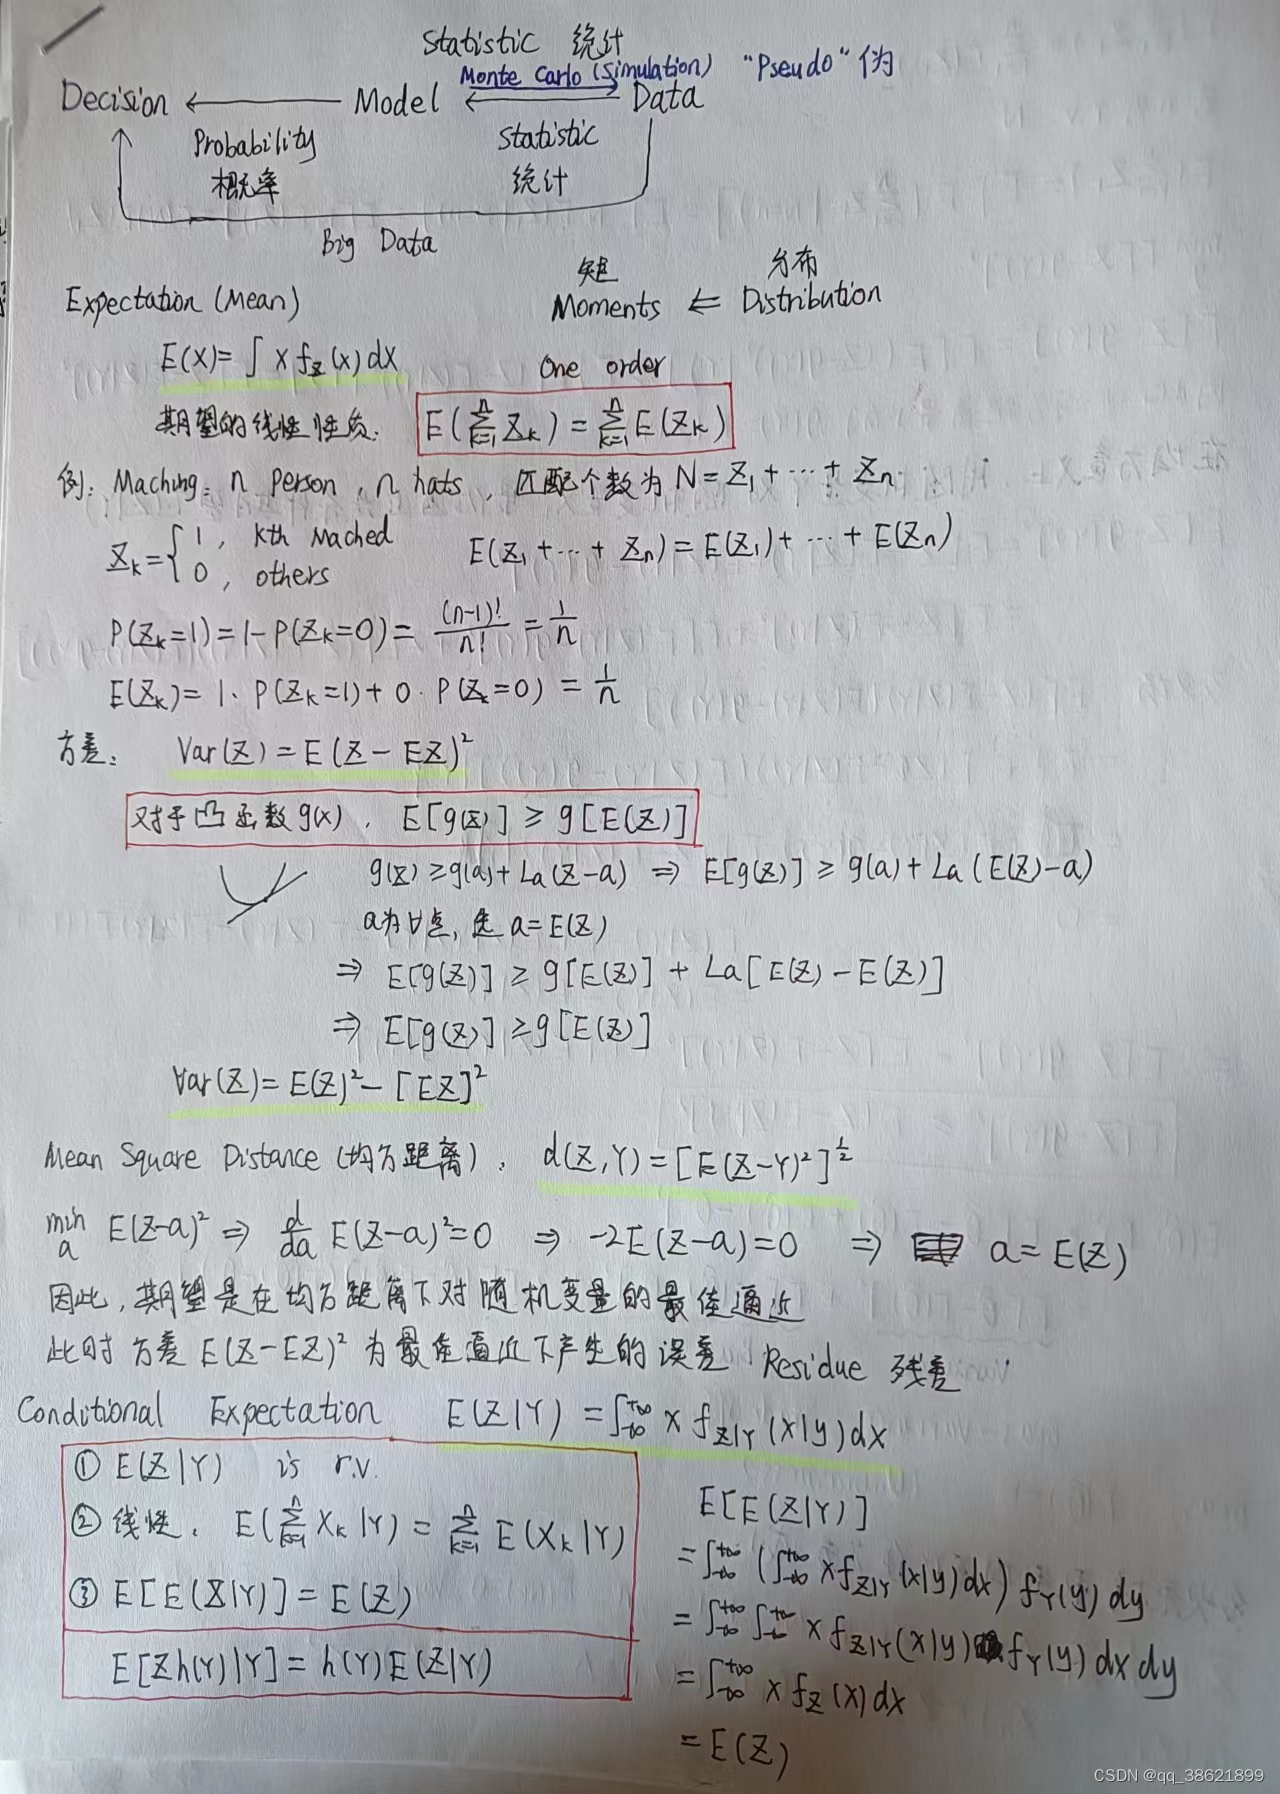 Statistic 统计
Monte Carlo (Simulation) "Pseudo" 伪
Decision ← Model ⇄ Data
Probability Statistic
概率 统计
Big Data
矩 分布
Expectation (Mean) Moments ⇐ Distribution
E(X)=∫ x f_X(x) dx One order
期望的线性性质: E(∑_{k=1}^n X_k) = ∑_{k=1}^n E(X_k)
例: Maching: n person, n hats, 匹配个数为 N = X_1 + ⋯ + X_n
X_k = { 1, kth Mached E(X_1 + ⋯ + X_n) = E(X_1) + ⋯ + E(X_n)
0, others
P(X_k=1) = 1 - P(X_k=0) = (n-1)!/n! = 1/n
E(X_k) = 1 · P(X_k=1) + 0 · P(X_k=0) = 1/n
方差: Var(X) = E(X - EX)^2
对于凸函数 g(x), E[g(X)] ≥ g[E(X)]
g(X) ≥ g(a) + La(X-a) ⇒ E[g(X)] ≥ g(a) + La(E(X)-a)
a为∀点, 选 a = E(X)
⇒ E[g(X)] ≥ g[E(X)] + La[E(X) - E(X)]
⇒ E[g(X)] ≥ g[E(X)]
Var(X) = E(X)^2 - [EX]^2
Mean Square Distance (均方距离), d(X,Y) = [E(X-Y)^2]^{1/2}
min_a E(X-a)^2 ⇒ d/da E(X-a)^2 = 0 ⇒ -2E(X-a) = 0 ⇒ a = E(X)
因此, 期望是在均方距离下对随机变量的最佳逼近
此时方差 E(X-EX)^2 为最佳逼近下产生的误差 Residue 残差
Conditional Expectation E(X|Y) = ∫_{-∞}^{+∞} x f_{X|Y}(x|y) dx
① E(X|Y) is r.v.
② 线性, E(∑_{k=1}^n X_k|Y) = ∑_{k=1}^n E(X_k|Y)
③ E[E(X|Y)] = E(X)
E[Xh(Y)|Y] = h(Y)E(X|Y)
E[E(X|Y)]
= ∫_{-∞}^{+∞} (∫_{-∞}^{+∞} x f_{X|Y}(x|y) dx) f_Y(y) dy
= ∫_{-∞}^{+∞} ∫_{-∞}^{+∞} x f_{X|Y}(x|y) f_Y(y) dx dy
= ∫_{-∞}^{+∞} x f_X(x) dx
= E(X)
CSDN @qq_38621899